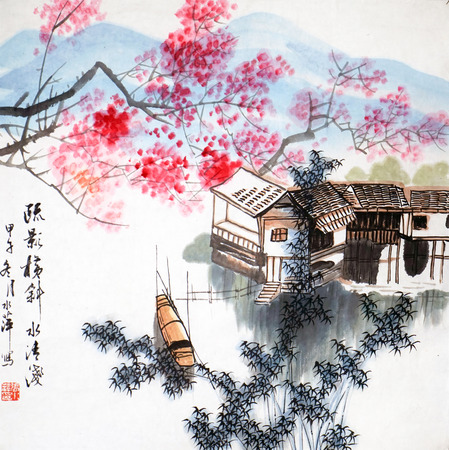 疏影横斜水清淺
甲午冬月水萍寫